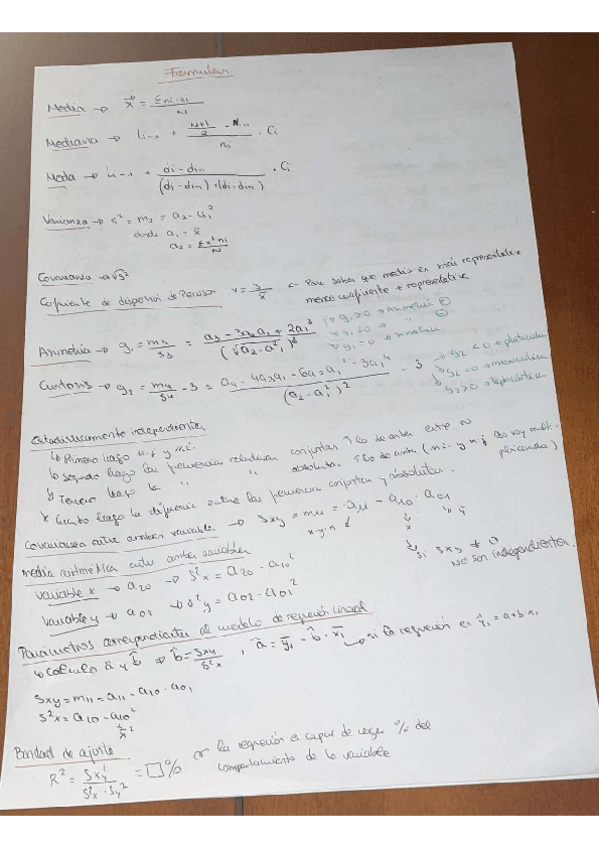 Formulas
Media → x̄ = Σni·xi / N
Mediana → Li-1 + (N+1/2 - Ni-1) / ni · Ci
Moda → Li-1 + di-dim / (di-dim)+(di-dim) · Ci
Varianza → s² = m2 = a2 - a1²
donde a1 = x̄
a2 = Σx²ni / N
Covarianza → √s²
Coficiente de dispersión de Pearson v = s / x̄ ← Para saber que media es más representativa
menos coeficiente + representativa
Asimetría → g1 = m3 / s3 = a3 - 3a2a1 + 2a1³ / (√a2-a1²)³
g1>0 → asimetría +
g1<0 → " -
g1=0 → simétrica
Curtosis → g2 = m4 / s4 - 3 = a4 - 4a3a1 + 6a2a1² - 3a1⁴ / (a2-a1²)² - 3
g2<0 → platicúrtica
g2=0 → mesocúrtica
g2>0 → leptocúrtica
Estadísticamente independientes
↳ Primero hago ni. y n.j
↳ Segundo hago las frecuencias relativas conjuntas, lo de antes entre N
↳ Tercero hago la " " absolutas. lo de antes (ni. y n.j las voy multiplicando)
Cuarto hago la diferencia entre las frecuencias conjuntas y absolutas.
Covarianza entre ambas variables → Sxy = m11 = a11 - a10 · a01
x̄ ȳ
Si Sxy ≠ 0
No son independientes.
media aritmética entre ambas variables
variable x → a20 → S²x = a20 - a10²
variable y → a02 → S²y = a02 - a01²
Parámetros correspondientes al modelo de regresión lineal
↳ Calculo â y b̂ → b̂ = Sxy / S²x , â = ȳ1 - b̂ · x̄1 → la regresión es ŷ1 = a+b·x1
Sxy = m11 = a11 - a10 · a01
S²x = a20 - a10²
x̄²
Bondad de ajuste
R² = Sxy² / S²x · Sy² = □% la regresión es capaz de coger % del
comportamiento de la variable